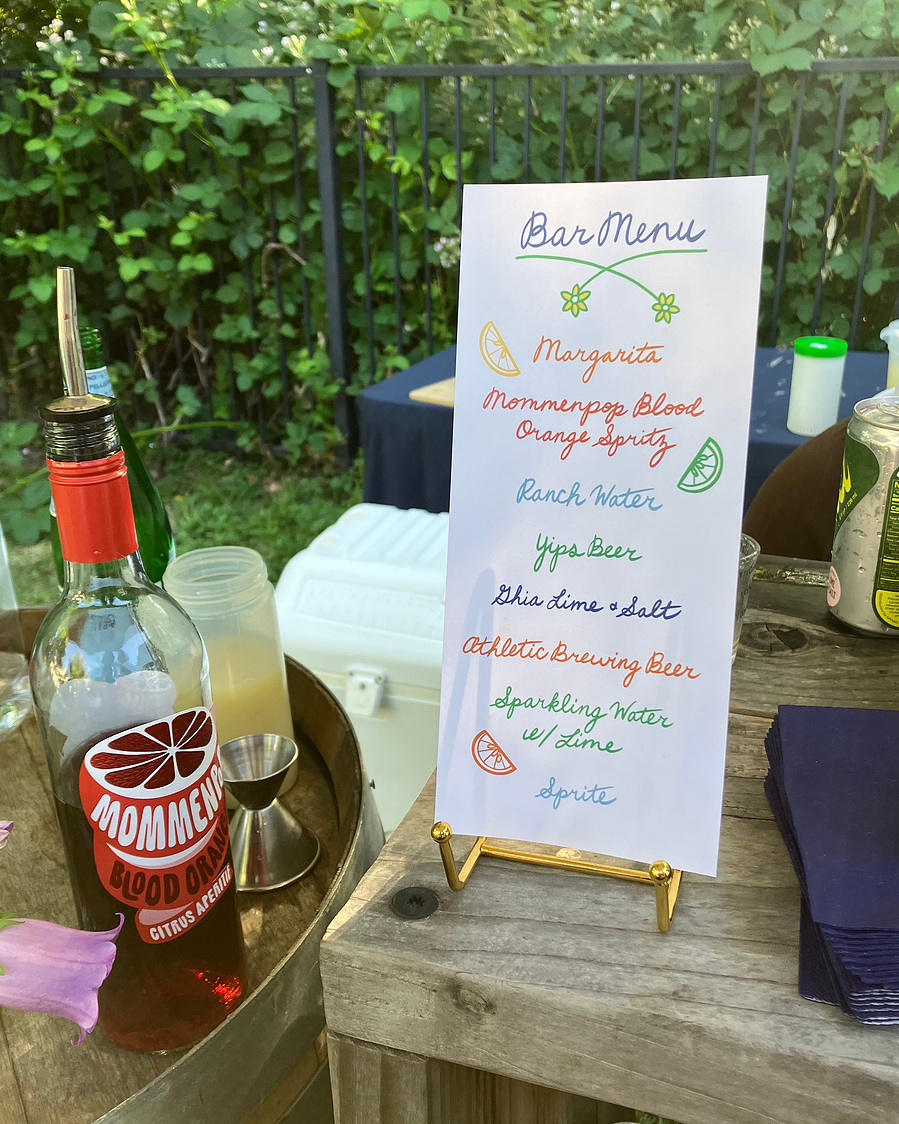 Bar Menu
Margarita
Mommenpop Blood
Orange Spritz
Ranch Water
Yips Beer
Ghia Lime & Salt
Athletic Brewing Beer
Sparkling Water
w/ Lime
Sprite
MOMMENP
BLOOD ORAN
CITRUS APERITIF